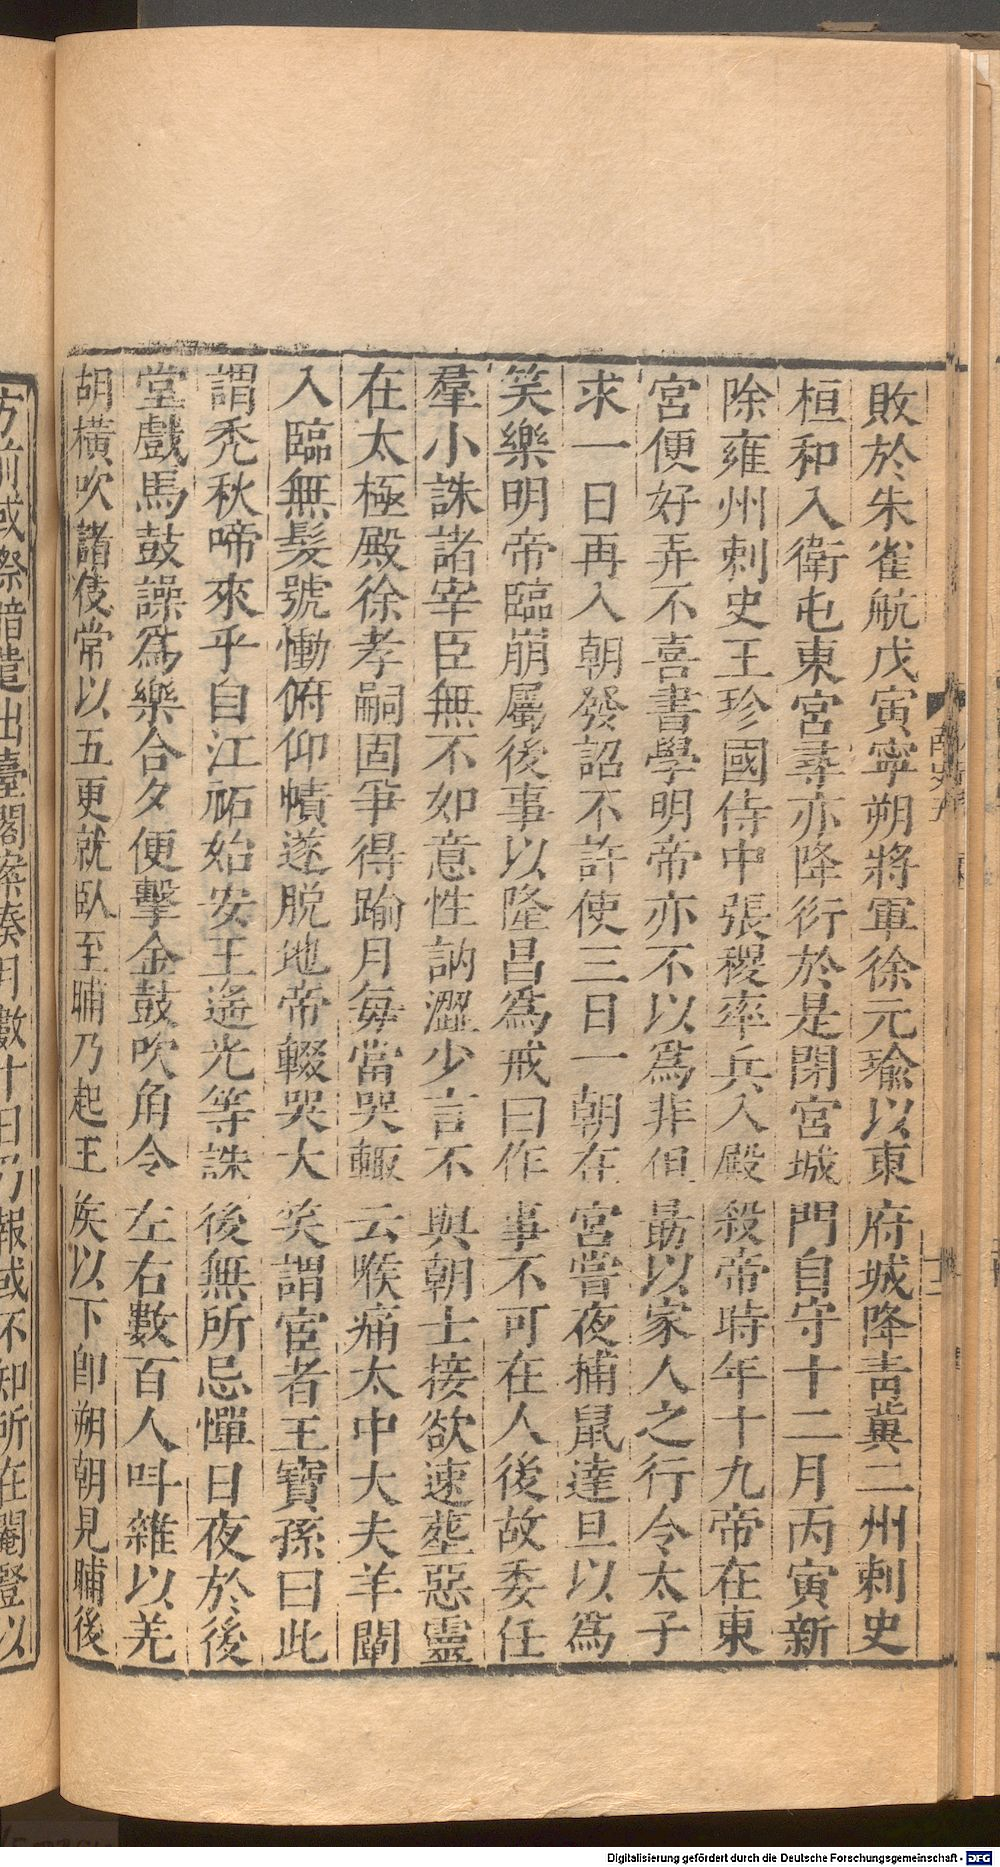 敗於朱雀航戊寅寧朔將軍徐元瑜以東府城降青冀二州刺史
桓和入衞屯東宮尋亦降衍於是閉宮城門自守十二月丙寅新
除雍州刺史王珍國侍中張稷率兵入殿殺帝時年十九帝在東
宮便好弄不喜書學明帝亦不以爲非但勗以家人之行令太子
求一日再入朝發詔不許使三日一朝在宮嘗夜捕鼠達旦以爲
笑樂明帝臨崩屬後事以隆昌爲戒曰作事不可在人後故委任
羣小誅諸宰臣無不如意性訥澀少言不與朝士接欲速塟惡靈
在太極殿徐孝嗣固爭得踰月每當哭輒云喉痛太中大夫羊闡
入臨無髮號慟俯仰幘遂脫地帝輟哭大笑謂宦者王寶孫曰此
謂禿秋啼來乎自江祏始安王遙光等誅後無所忌憚日夜於後
堂戲馬鼓譟爲樂合夕便擊金鼓吹角令左右數百人叫雜以羌
胡橫吹諸伎常以五更就臥至晡乃起王矦以下節朔朝見晡後
方前或際暗遣出臺閣案奏月數十日乃報或不知所在閹豎以
南史五
Digitalisierung gefördert durch die Deutsche Forschungsgemeinschaft - DFG